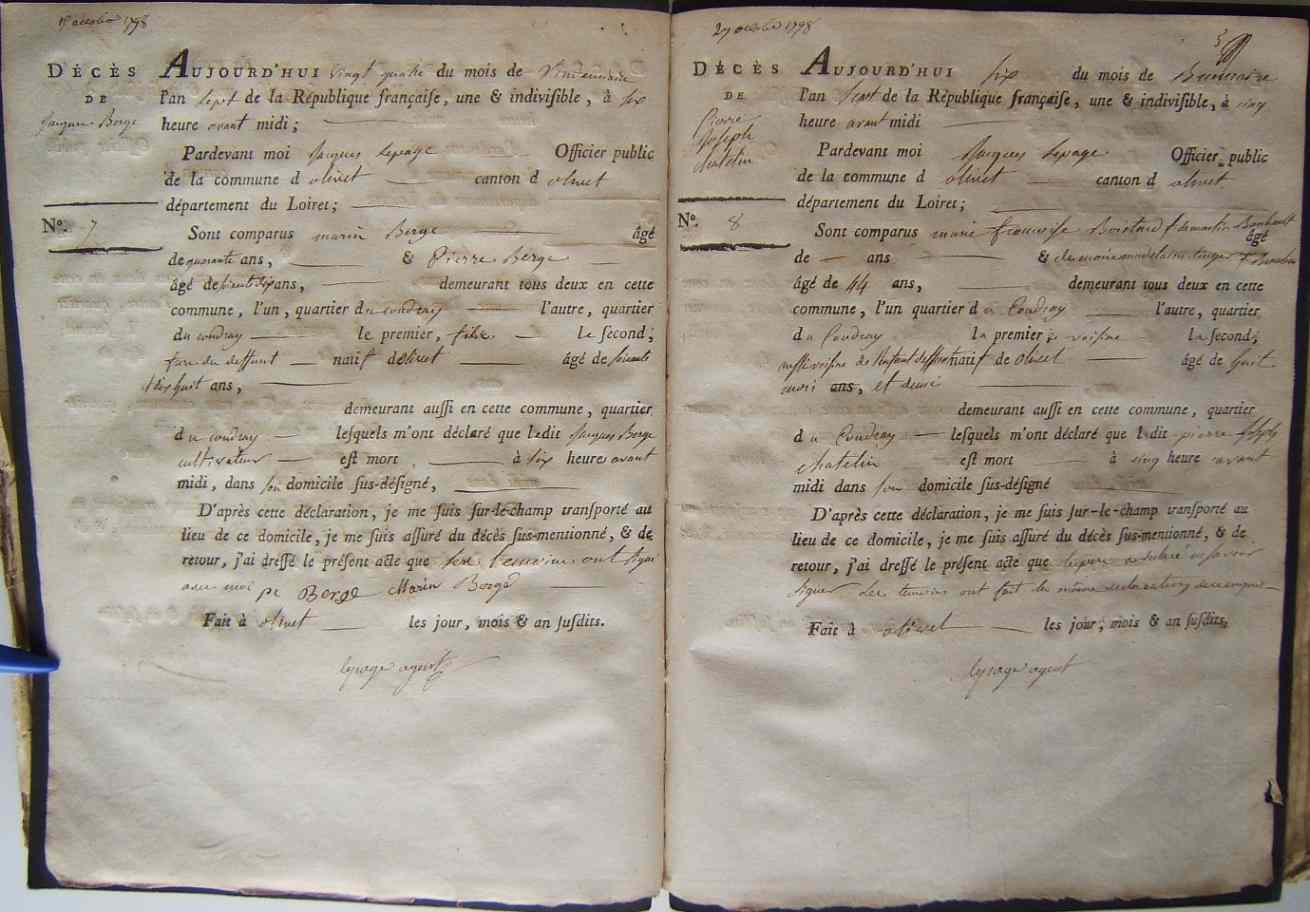 15 octobre 1798
DÉCÈS
DE
Jacques Berge
No. 7
AUJOURD'HUI vingt quatre du mois de Vendemiaire
l'an sept de la République françaiſe, une & indiviſible, à six
heure avant midi ;
Pardevant moi Jacques Lepage Officier public
de la commune d olivet canton d olivet
département du Loiret ;
Sont comparus marin Berge âgé
de quarante ans, & Pierre Berge
âgé de ans, demeurant tous deux en cette
commune, l'un, quartier du coudray l'autre, quartier
du coudray le premier, fils le ſecond ;
du deffunt natif d olivet âgé de soixante
dix huit ans,
demeurant auſſi en cette commune, quartier
du coudray leſquels m'ont déclaré que ledit Jacques Berge
cultivateur eſt mort à six heure avant
midi, dans son domicile ſus-déſigné,
D'après cette déclaration, je me ſuis ſur-le-champ tranſporté au
lieu de ce domicile, je me ſuis aſſuré du décès ſus-mentionné, & de
retour, j'ai dreſſé le préſent acte que les temoins ont signé
avec moi pr Berge Marin Berge
Fait à olivet les jour, mois & an ſuſdits.
lepage agent
27 octobre 1798
DÉCÈS
DE
Pierre
Joseph
chatelin
No. 8
AUJOURD'HUI six du mois de Brumaire
l'an sept de la République françaiſe, une & indiviſible, à cinq
heure avant midi
Pardevant moi Jacques Lepage Officier public
de la commune d olivet canton d olivet
département du Loiret ;
Sont comparus marie francoise f de martin âgé
de ans & de marie f
âgé de 44 ans, demeurant tous deux en cette
commune, l'un, quartier du Coudray l'autre, quartier
du Coudray la premier voisine la ſecond ;
voisine de natif de olivet âgé de huit
mois ans, et demi
demeurant auſſi en cette commune, quartier
du Coudray leſquels m'ont déclaré que ledit pierre joseph
chatelin eſt mort à cinq heure avant
midi dans son domicile ſus-déſigné
D'après cette déclaration, je me ſuis ſur-le-champ tranſporté au
lieu de ce domicile, je me ſuis aſſuré du décès ſus-mentionné, & de
retour, j'ai dreſſé le préſent acte que a declaré ne savoir
signer Les temoins ont fait la même declaration
Fait à olivet les jour, mois & an ſuſdits,
lepage agent